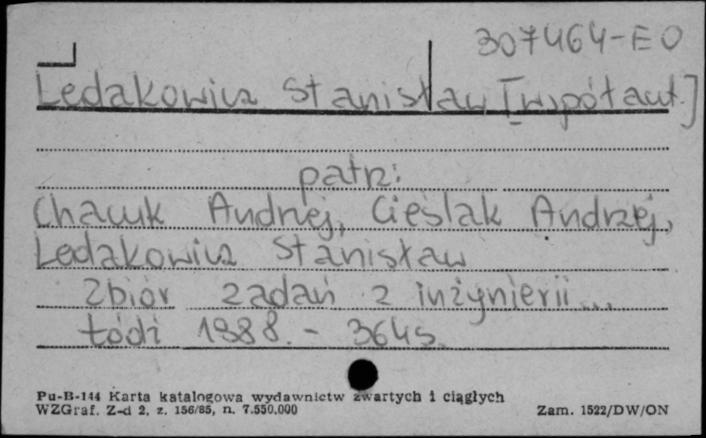 307464-EO
Ledakowicz Stanisław [współaut.]
patrz:
Chacuk Andrzej, Cieślak Andrzej,
Ledakowicz Stanisław
Zbiór zadań z inżynierii...
Łódź 1988. - 364 s.
Pu-B-144 Karta katalogowa wydawnictw zwartych i ciągłych
WZGraf. Z-d 2, z. 156/85, n. 7.550.000
Zam. 1522/DW/ON